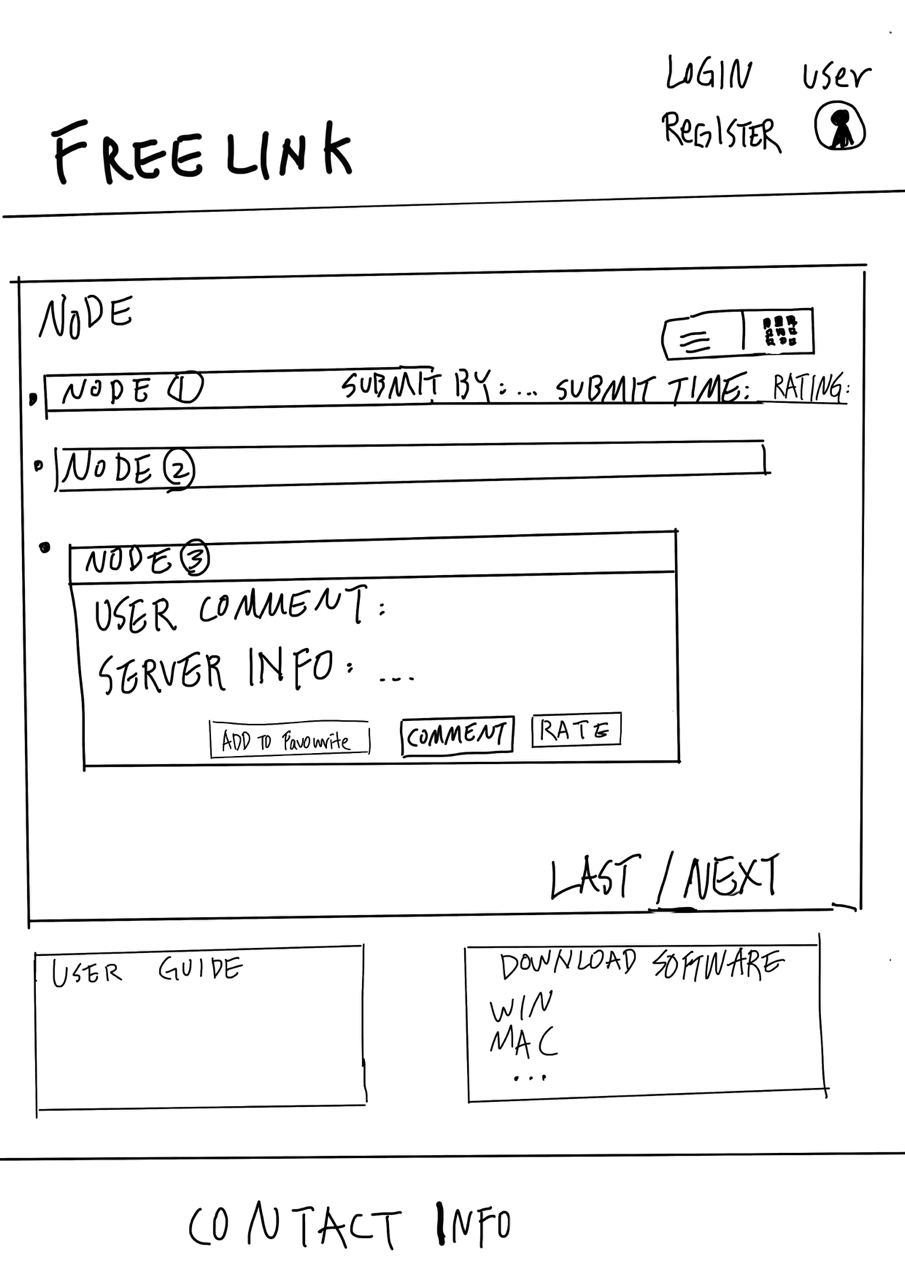 LOGIN user
REGISTER
FREELINK
NODE
NODE 1 SUBMIT BY:... SUBMIT TIME: RATING:
NODE 2
NODE 3
USER COMMENT:
SERVER INFO: ...
ADD TO Favourite COMMENT RATE
LAST / NEXT
USER GUIDE
DOWNLOAD SOFTWARE
WIN
MAC
...
CONTACT INFO